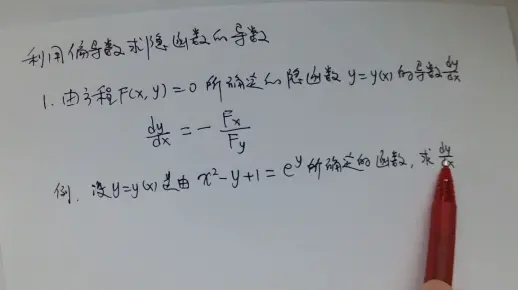 利用偏导数求隐函数的导数
1. 由方程F(x, y)=0 所确定的隐函数 y=y(x) 的导数 dy/dx
dy/dx = - Fx/Fy
例. 设 y=y(x) 是由 x²-y+1=e^y 所确定的函数, 求 dy/dx